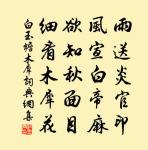 雨送炎官印
風宣白帝麻
欲知秋面目
細看木犀花
白玉蟾木犀詞典網集